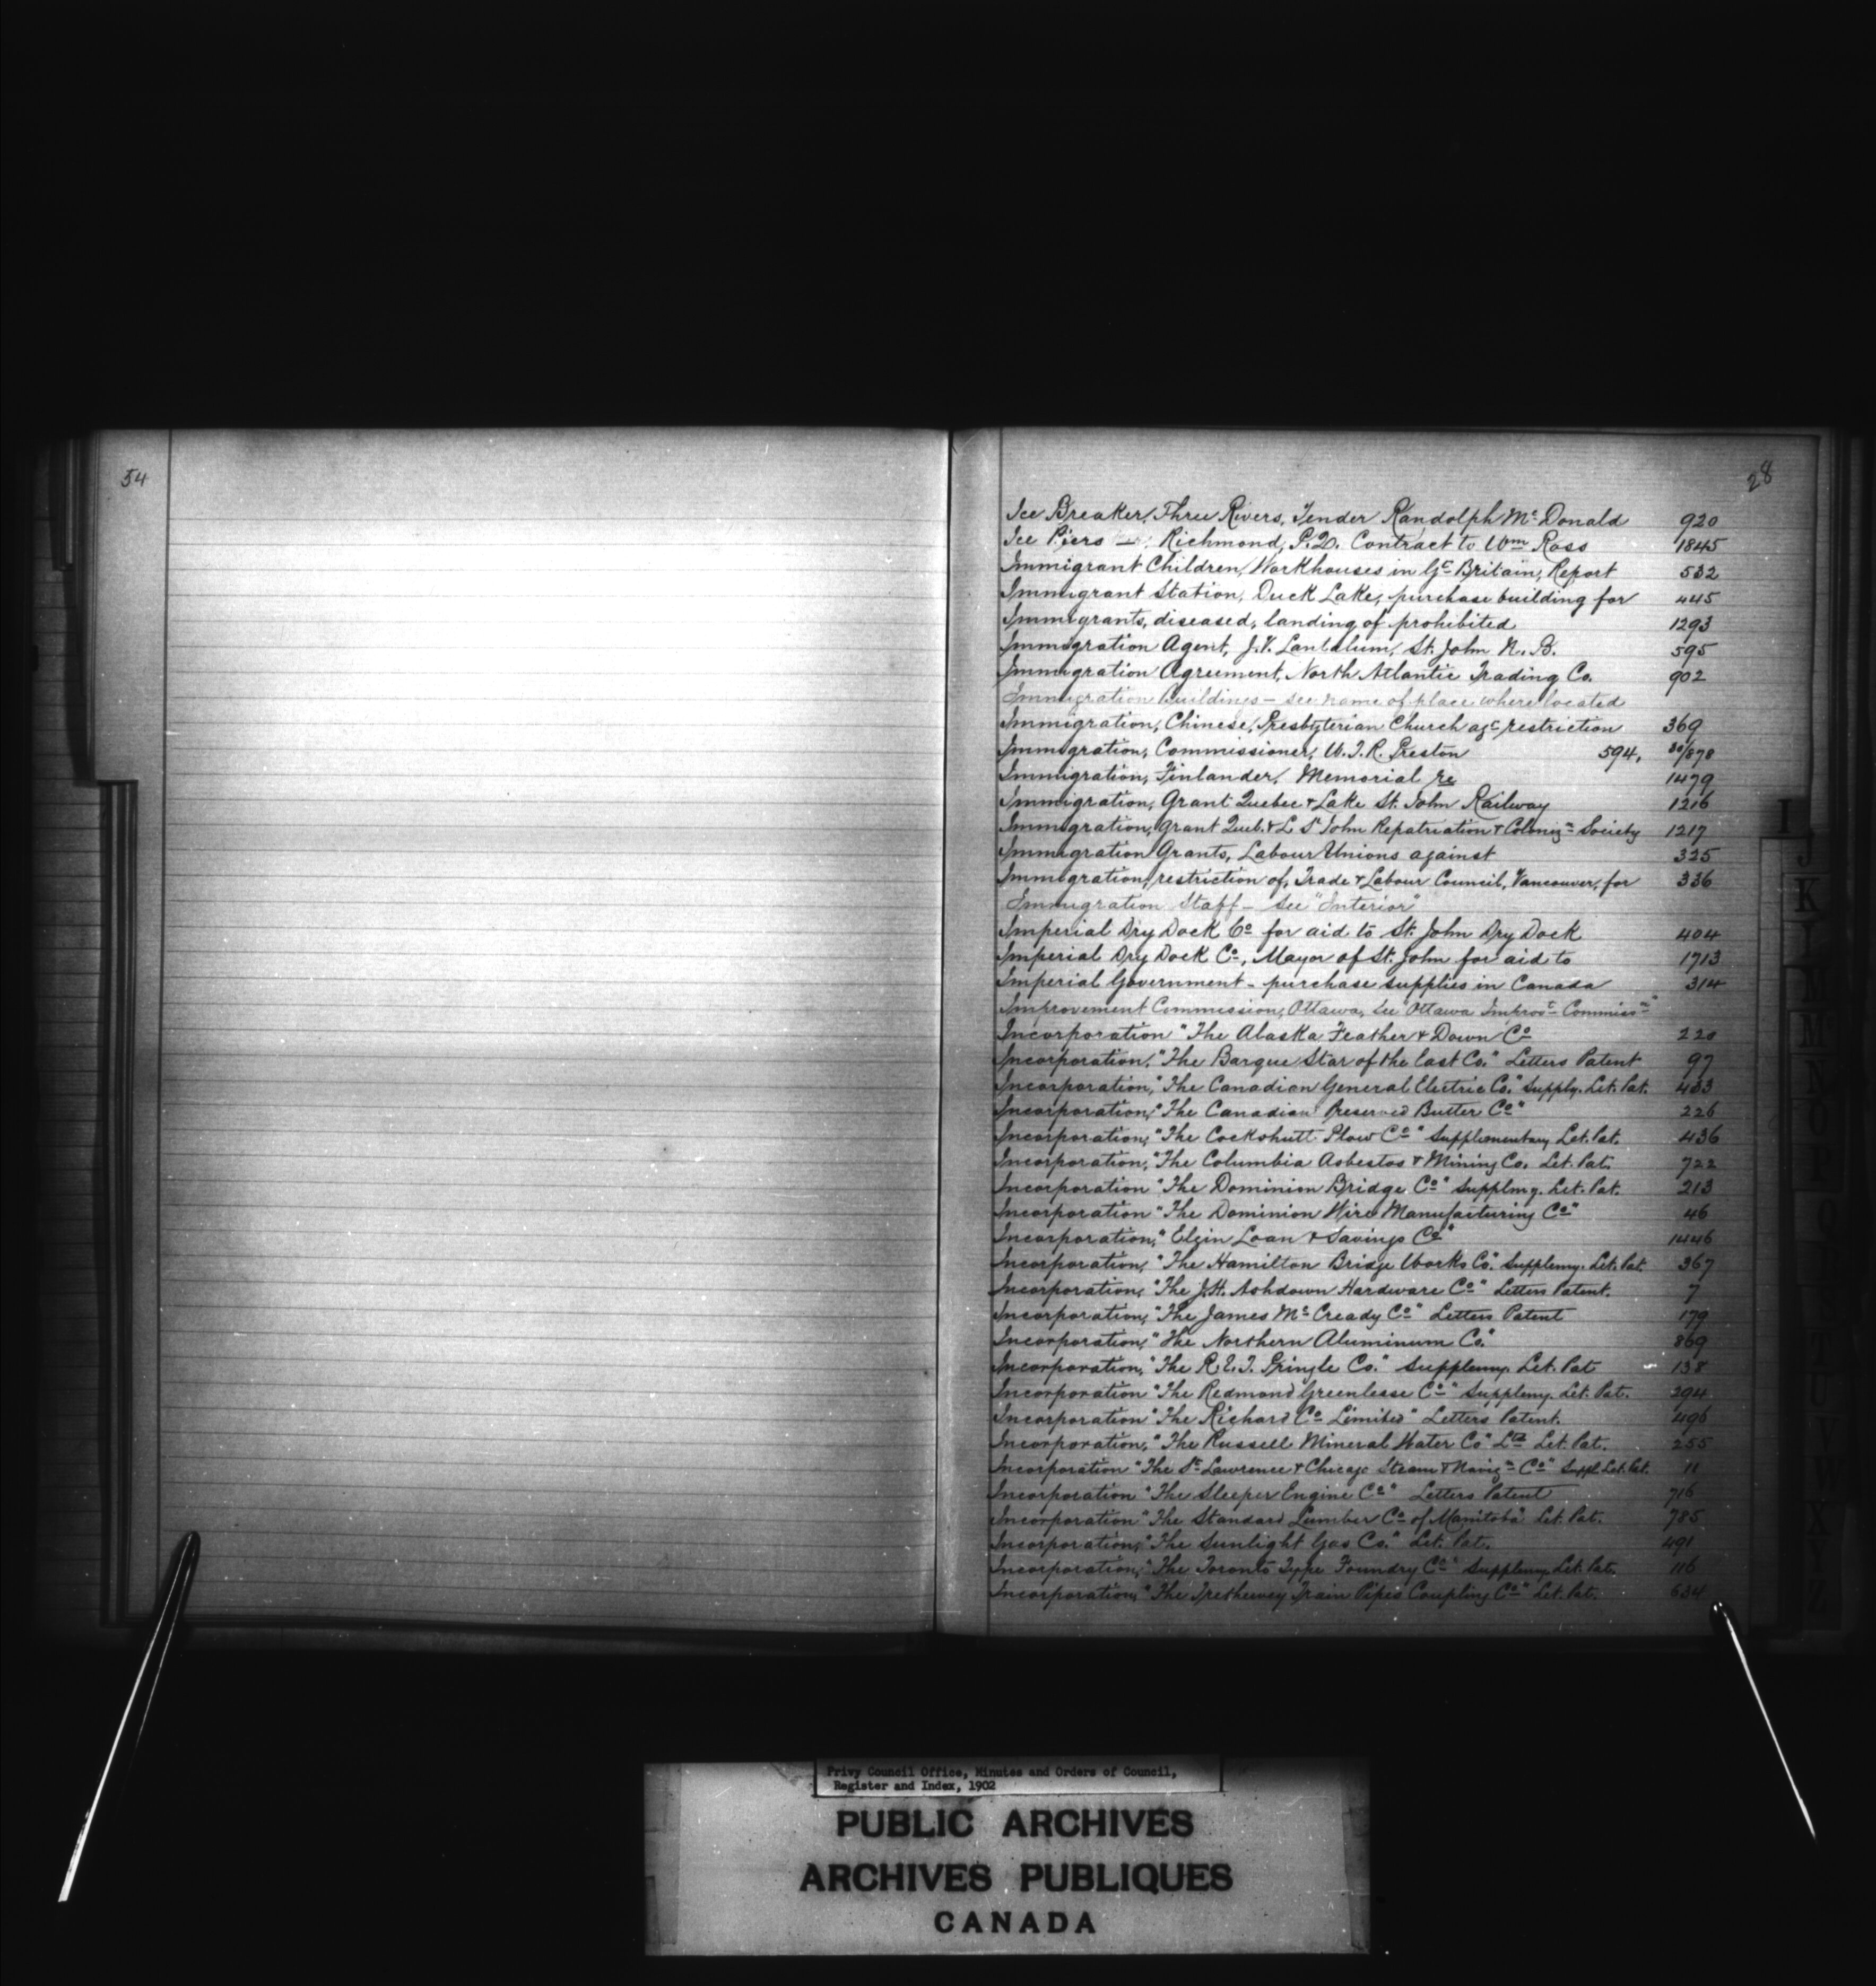 54
28
Ice Breaker, Three Rivers, Tender Randolph Mc Donald 920
Ice Piers — Richmond, P.Q. Contract to Wm Ross 1845
Immigrant Children, Workhouses in Gt Britain, Report 532
Immigrant Station, Duck Lake, purchase building for 445
Immigrants, diseased, landing of prohibited 1293
Immigration Agent, J.V. Lantalum, St. John N.B. 595
Immigration Agreement, North Atlantic Trading Co. 902
Immigration Buildings – see name of place where located
Immigration, Chinese, Presbyterian Church agt restriction 369
Immigration, Commissioner, W.T.R. Preston 594, 30/878
Immigration, Finlander, Memorial re 1479
Immigration, Grant Quebec & Lake St. John Railway 1216
Immigration, Grant Queb. & L St John Repatriation & Colonizn Society 1217
Immigration Grants, Labour Unions against 325
Immigration, restriction of, Trade & Labour Council, Vancouver, for 336
Immigration Staff – see "Interior"
Imperial Dry Dock Co for aid to St. John Dry Dock 404
Imperial Dry Dock Co, Mayor of St. John for aid to 1713
Imperial Government – purchase supplies in Canada 314
Improvement Commission, Ottawa, See "Ottawa Improvt Commissn"
Incorporation "The Alaska Feather & Down Co 220
Incorporation, "The Barque Star of the East Co." Letters Patent 97
Incorporation, "The Canadian General Electric Co." Supply. Let. Pat. 433
Incorporation, "The Canadian Preserved Butter Co" 226
Incorporation, "The Cockshutt Plow Co" Supplementary Let. Pat. 436
Incorporation, "The Columbia Asbestos & Mining Co. Let. Pat. 722
Incorporation "The Dominion Bridge Co" Supplmy. Let. Pat. 213
Incorporation "The Dominion Wire Manufacturing Co" 46
Incorporation, "Elgin Loan & Savings Co" 1446
Incorporation, "The Hamilton Bridge Works Co." Supplemy. Let. Pat. 367
Incorporation, "The J.H. Ashdown Hardware Co" Letters Patent. 7
Incorporation, "The James Mc Cready Co" Letters Patent 179
Incorporation, "The Northern Aluminum Co." 869
Incorporation, "The R.E.T. Pringle Co." Supplemy. Let. Pat 138
Incorporation "The Redmond Greenlesse Co" Supplemy. Let. Pat. 294
Incorporation "The Richard Co Limited" Letters Patent. 496
Incorporation, "The Russell Mineral Water Co" Ltd Let. Pat. 255
Incorporation "The St Lawrence & Chicago Steam & Navign Co" Suppl. Let. Pat. 11
Incorporation "The Sleeper Engine Co" Letters Patent 716
Incorporation "The Standard Lumber Co of Manitoba" Let. Pat. 785
Incorporation, "The Sunlight Gas Co." Let. Pat. 491
Incorporation, "The Toronto Type Foundry Co" Supplemy. Let. Pat. 116
Incorporation, "The Trethewey Train Pipes Coupling Co" Let. Pat. 634
I
J
K
Privy Council Office, Minutes and Orders of Council,
Register and Index, 1902
PUBLIC ARCHIVES
ARCHIVES PUBLIQUES
CANADA